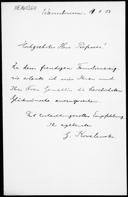 Hochgeehrter Herr Professor!
Zu dem freudigen Familienereignis
erlaube ich mir Ihnen und
Ihrer Frau Gemahlin die herzlichsten
Glückwünsche auszusprechen.
Mit hochachtungsvoller Empfehlung
Ihr ergebenster
G. Kowalewski